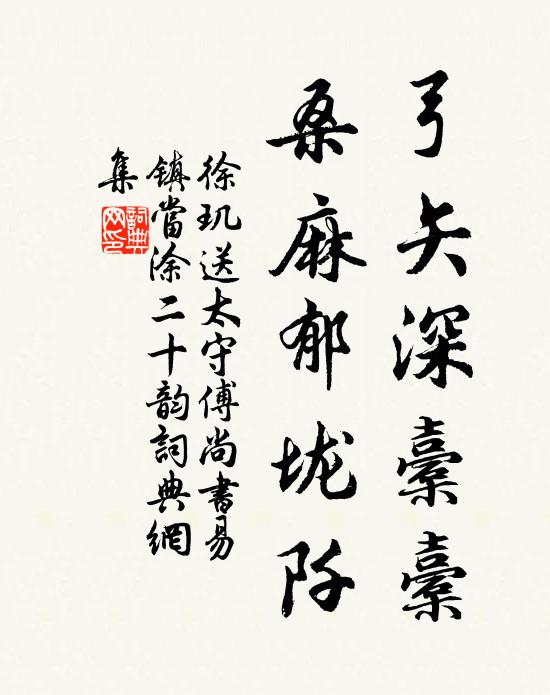 弓矢深橐橐
桑麻郁垅阡
徐玑送太守傅尚書易
鎮當涂二十韵詞典網
集
詞典
网印